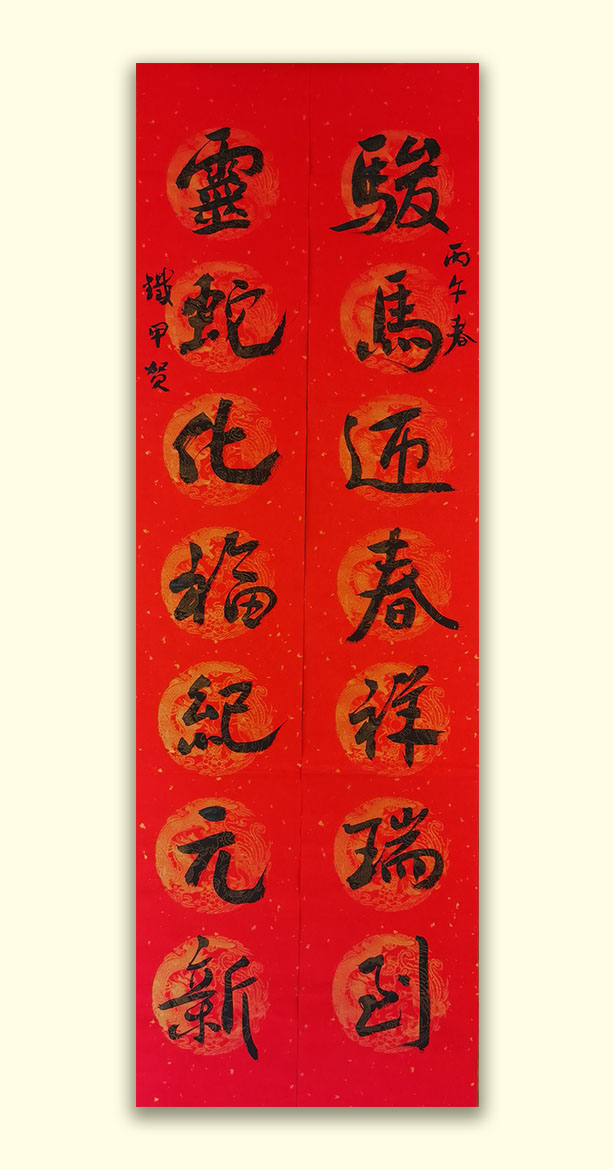 駿馬迎春祥瑞到
丙午春
靈蛇化福紀元新
鐵甲贺